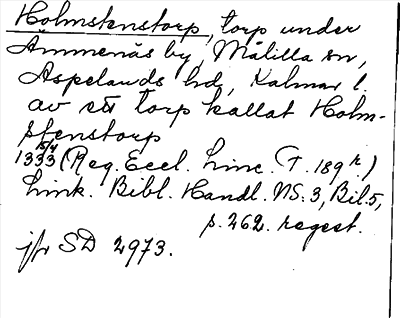 Holmstenstorp, torp under
Ämmenäs by, Målilla sn,
Aspelands hd, Kalmar l.
av ett torp kallat Holm-
stenstorp
15/4
1333 (Reg. Eccl. Linc. T. 189 r.)
Link. Bibl. Handl. NS. 3, Bil. 5,
p. 262. regest.
jfr SD 2973.